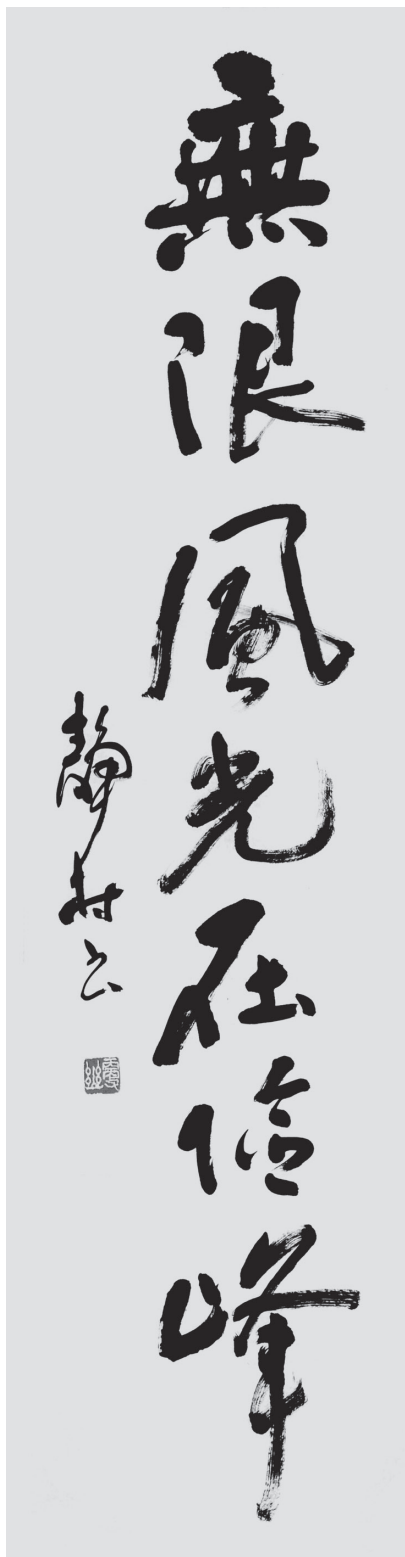 無限風光在險峰
靜村书